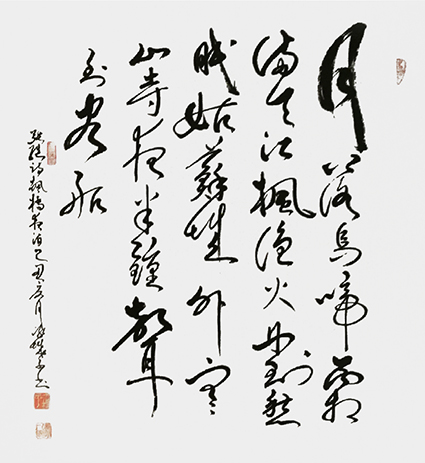 月落烏啼霜
滿天江楓漁火對愁
眠姑蘇城外寒
山寺夜半鐘聲
到客船
張繼詩楓橋夜泊己丑